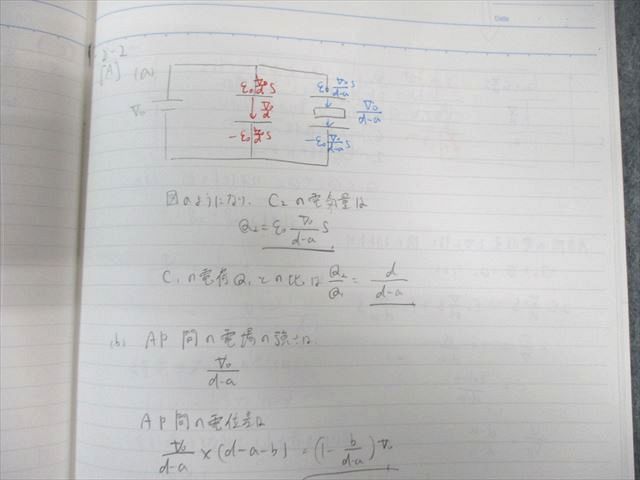 Date
2-2
[A] (a)
V₀
ε₀ V₀/d S
V₀/d
-ε₀ V₀/d S
ε₀ V₀/(d-a) S
V₀/(d-a)
-ε₀ V₀/(d-a) S
図のようになり、C₂の電気量は
Q₂ = ε₀ V₀/(d-a) S
C₁の電荷Q₁との比は Q₂/Q₁ = d/(d-a)
(b) AP間の電場の強さは
V₀/(d-a)
AP間の電位差は
V₀/(d-a) × (d-a-b) = (1 - b/(d-a)) V₀